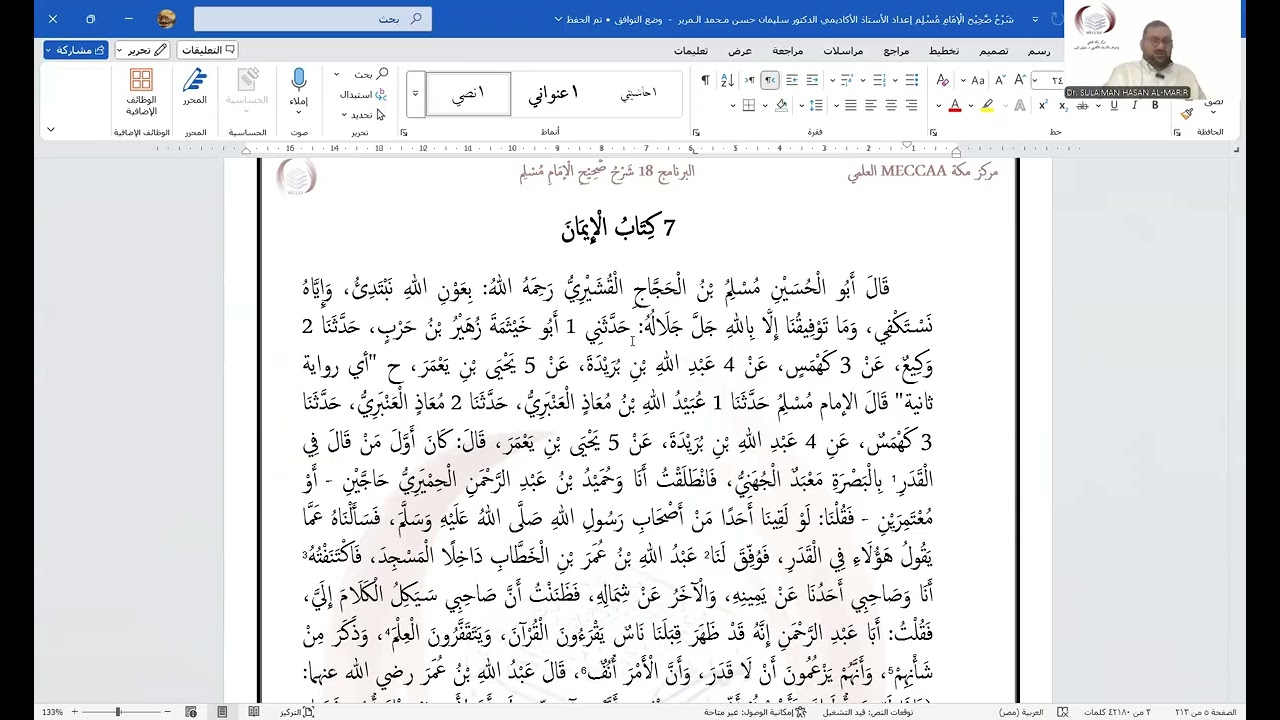 شَرْحُ صَّحِيْحِ الْإِمَامِ مُسْلِمِ إعداد الأستاذ الأكاديمي الدكتور سليمان حسن محمد المرير - وضع التوافق • تم الحفظ
بحث
رسم تصميم تخطيط مراجع مراسلات مراجعة عرض تعليمات
التعليقات تحرير مشاركة
MECCAA
Dr. SULAIMAN HASAN AL-MARIR
بحث
استبدال
تحديد
إملاء
الحساسية
المحرر
الوظائف الإضافية
الحافظة خط فقرة أنماط تحرير صوت الحساسية الوظائف الإضافية
مركز مكة MECCAA العلمي البرنامج 18 شَرْحُ صَّحِيْحِ الْإِمَامِ مُسْلِمِ
7 كِتَابُ الْإِيمَانَ
قَالَ أَبُو الْحُسَيْنِ مُسْلِمُ بْنُ الْحَجَّاجِ الْقُشَيْرِيُّ رَحِمَهُ اللهُ: بِعَوْنِ اللهِ نَبْتَدِئُ، وَإِيَّاهُ
نَسْتَكْفِي، وَمَا تَوْفِيقُنَا إِلَّا بِاللهِ جَلَّ جَلَالُهُ: حَدَّثَنِي 1 أَبُو خَيْثَمَةَ زُهَيْرُ بْنُ حَرْبٍ، حَدَّثَنَا 2
وَكِيعٌ، عَنْ 3 كَهْمَسٍ، عَنْ 4 عَبْدِ اللهِ بْنِ بُرَيْدَةَ، عَنْ 5 يَحْيَى بْنِ يَعْمَرَ، ح "أي رواية
ثانية" قَالَ الإمام مُسْلِمُ حَدَّثَنَا 1 عُبَيْدُ اللهِ بْنُ مُعَاذٍ الْعَنْبَرِيُّ، حَدَّثَنَا 2 مُعَاذٍ الْعَنْبَرِيُّ، حَدَّثَنَا
3 كَهْمَسٌ، عَنِ 4 عَبْدِ اللهِ بْنِ بُرَيْدَةَ، عَنْ 5 يَحْيَى بْنِ يَعْمَرَ، قَالَ: كَانَ أَوَّلَ مَنْ قَالَ فِي
الْقَدَرِ¹ بِالْبَصْرَةِ مَعْبَدٌ الْجُهَنِيُّ، فَانْطَلَقْتُ أَنَا وَحُمَيْدُ بْنُ عَبْدِ الرَّحْمَنِ الْحِمْيَرِيُّ حَاجَّيْنِ - أَوْ
مُعْتَمِرَيْنِ - فَقُلْنَا: لَوْ لَقِينَا أَحَدًا مَنْ أَصْحَابِ رَسُولِ اللهِ صَلَّى اللهُ عَلَيْهِ وَسَلَّمَ، فَسَأَلْنَاهُ عَمَّا
يَقُولُ هَؤُلَاءِ فِي الْقَدَرِ، فَوُفِّقَ لَنَا² عَبْدُ اللهِ بْنُ عُمَرَ بْنِ الْخَطَّابِ دَاخِلًا الْمَسْجِدَ، فَاكْتَنَفْتُهُ³
أَنَا وَصَاحِبِي أَحَدُنَا عَنْ يَمِينِهِ، وَالْآخَرُ عَنْ شِمَالِهِ، فَظَنَنْتُ أَنَّ صَاحِبِي سَيَكِلُ الْكَلَامَ إِلَيَّ،
فَقُلْتُ: أَبَا عَبْدِ الرَّحْمَنِ إِنَّهُ قَدْ ظَهَرَ قِبَلَنَا نَاسٌ يَقْرَءُونَ الْقُرْآنَ، وَيَتَقَفَّرُونَ الْعِلْمَ⁴، وَذَكَرَ مِنْ
شَأْنِهِمْ⁵، وَأَنَّهُمْ يَزْعُمُونَ أَنْ لَا قَدَرَ، وَأَنَّ الْأَمْرَ أُنُفٌ⁶، قَالَ عَبْدُ اللهِ بْنُ عُمَرَ رضي الله عنهما:
الصفحة ٥ من ٢١٣ ٣ من ٤٢١٨٠ كلمات العربية (مصر) توقعات النص: قيد التشغيل إمكانية الوصول: غير متاحة التركيز 133%